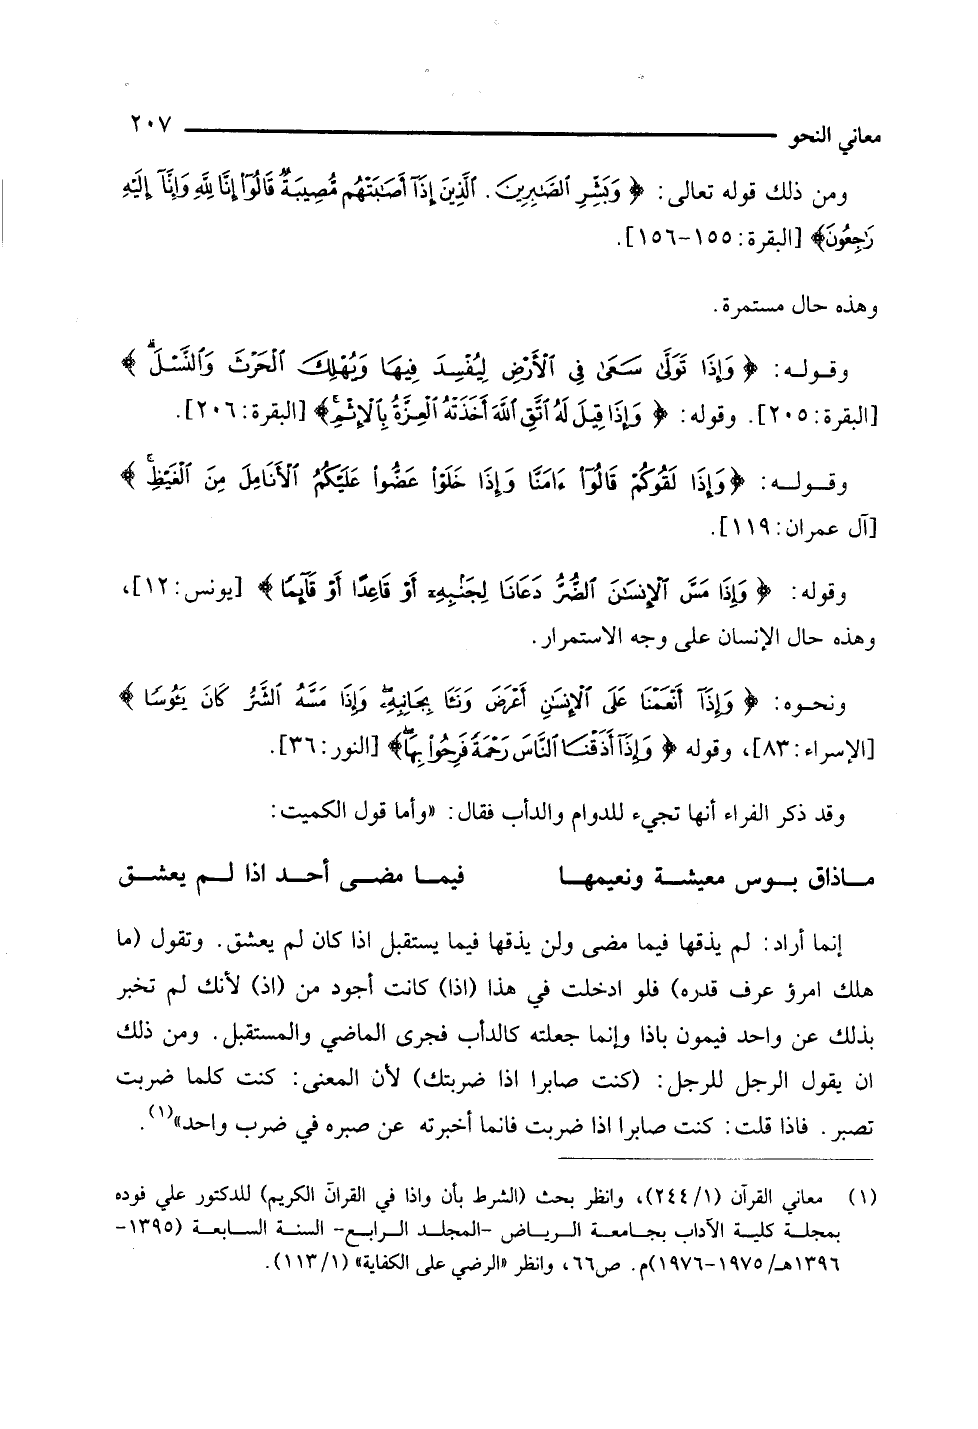 معاني النحو ٢٠٧
ومن ذلك قوله تعالى: ﴿ وَبَشِّرِ ٱلصَّٰبِرِينَ. ٱلَّذِينَ إِذَآ أَصَٰبَتْهُم مُّصِيبَةٌ قَالُوٓا۟ إِنَّا لِلَّهِ وَإِنَّآ إِلَيْهِ
رَٰجِعُونَ﴾ [البقرة: ١٥٥-١٥٦].
وهذه حال مستمرة.
وقوله: ﴿ وَإِذَا تَوَلَّىٰ سَعَىٰ فِى ٱلْأَرْضِ لِيُفْسِدَ فِيهَا وَيُهْلِكَ ٱلْحَرْثَ وَٱلنَّسْلَ ۗ ﴾
[البقرة: ٢٠٥]. وقوله: ﴿ وَإِذَا قِيلَ لَهُ ٱتَّقِ ٱللَّهَ أَخَذَتْهُ ٱلْعِزَّةُ بِٱلْإِثْمِ ۚ﴾ [البقرة: ٢٠٦].
وقوله: ﴿وَإِذَا لَقُوكُمْ قَالُوٓا۟ ءَامَنَّا وَإِذَا خَلَوْا۟ عَضُّوا۟ عَلَيْكُمُ ٱلْأَنَامِلَ مِنَ ٱلْغَيْظِ ۚ ﴾
[آل عمران: ١١٩].
وقوله: ﴿ وَإِذَا مَسَّ ٱلْإِنسَٰنَ ٱلضُّرُّ دَعَانَا لِجَنۢبِهِۦٓ أَوْ قَاعِدًا أَوْ قَآئِمًا ﴾ [يونس: ١٢]،
وهذه حال الإنسان على وجه الاستمرار.
ونحوه: ﴿ وَإِذَآ أَنْعَمْنَا عَلَى ٱلْإِنسَٰنِ أَعْرَضَ وَنَـَٔا بِجَانِبِهِۦ ۖ وَإِذَا مَسَّهُ ٱلشَّرُّ كَانَ يَـُٔوسًا ﴾
[الإسراء: ٨٣]، وقوله ﴿ وَإِذَآ أَذَقْنَا ٱلنَّاسَ رَحْمَةً فَرِحُوا۟ بِهَا ۖ﴾ [النور: ٣٦].
وقد ذكر الفراء أنها تجيء للدوام والدأب فقال: «وأما قول الكميت:
ماذاق بوس معيشة ونعيمها فيما مضى أحد اذا لم يعشق
إنما أراد: لم يذقها فيما مضى ولن يذقها فيما يستقبل اذا كان لم يعشق. وتقول (ما
هلك امرؤ عرف قدره) فلو ادخلت في هذا (اذا) كانت أجود من (اذ) لأنك لم تخبر
بذلك عن واحد فيمون باذا وإنما جعلته كالدأب فجرى الماضي والمستقبل. ومن ذلك
ان يقول الرجل للرجل: (كنت صابرا اذا ضربتك) لأن المعنى: كنت كلما ضربت
تصبر. فاذا قلت: كنت صابرا اذا ضربت فانما أخبرته عن صبره في ضرب واحد»(١).
(١) معاني القرآن (٢٤٤/١)، وانظر بحث (الشرط بأن واذا في القرآن الكريم) للدكتور علي فوده
بمجلة كلية الآداب بجامعة الرياض -المجلد الرابع- السنة السابعة (١٣٩٥-
١٣٩٦هـ/١٩٧٥-١٩٧٦)م. ص٦٦، وانظر «الرضي على الكفاية» (١١٣/١).